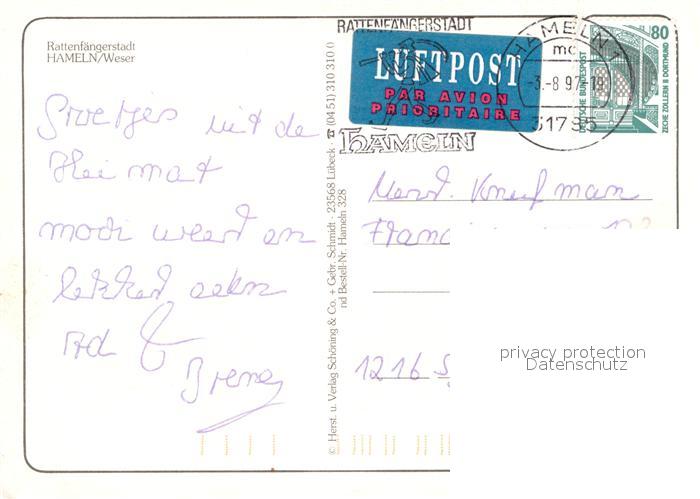 Rattenfängerstadt
HAMELN/Weser
Groetjes uit de
Heimat
mooi weer en
lekker eten
Ad &
Irene
© Herst. u. Verlag Schöning & Co. + Gebr. Schmidt · 23568 Lübeck · ☎ (04 51) 310 310 0
nd Bestell-Nr. Hameln 328
RATTENFÄNGERSTADT
HAMELN
LUFTPOST
PAR AVION
PRIORITAIRE
HAMELN 1
mc
-3.-8 97-1
31785
80
DEUTSCHE BUNDESPOST
ZECHE ZOLLERN II DORTMUND
Franc
1216 S
privacy protection
Datenschutz